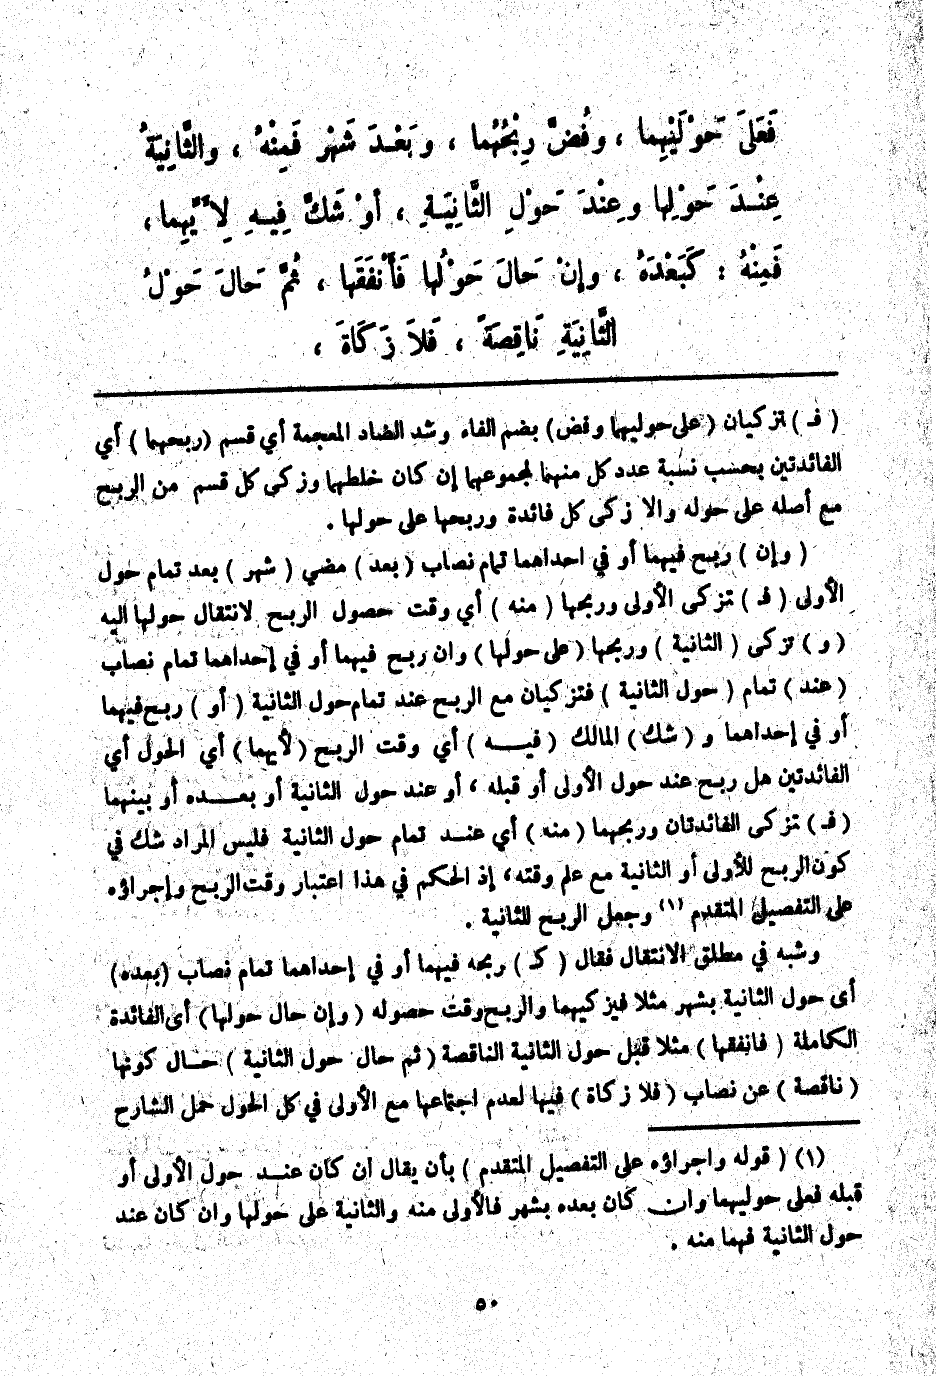 فَعَلَى حَوْلَيْهِما ، وفُضَّ رِبْحُهُما ، وَبَعْدَ شَهْرٍ فَمِنْهُ ، والثَّانِيَةُ
عِنْدَ حَوْلِها وعِنْدَ حَوْلِ الثَّانِيَةِ ، أوْ شَكَّ فِيهِ لِأَيِّهِما ،
فَمِنْهُ : كَبَعْدَهُ ، وإنْ حَالَ حَوْلُها فَأَنْفَقَها ، ثُمَّ حَالَ حَوْلُ
الثَّانِيَةِ نَاقِصَةً ، فَلاَ زَكَاةَ ،
( فـ ) تزكيان ( على حوليهما وفض) بضم الفاء وشد الضاد المعجمة أي قسم (ربحهما ) أي
الفائدتين بحسب نسبة عدد كل منهما لمجموعهما إن كان خلطهما وزكى كل قسم من الربح
مع أصله على حوله والا زكى كل فائدة وربحها على حولها .
( وإن ) ربح فيهما أو في احداهما تمام نصاب ( بعد ) مضي ( شهر ) بعد تمام حول
الأولى ( فـ ) تزكى الأولى وربحها ( منه ) أي وقت حصول الربح لانتقال حولها اليه
( و ) تزكى ( الثانية ) وربحها ( على حولها ) وان ربح فيهما أو في إحداهما تمام نصاب
( عند ) تمام ( حول الثانية ) فتزكيان مع الربح عند تمام حول الثانية ( أو ) ربح فيهما
أو في إحداهما و ( شك ) المالك ( فيـــه ) أي وقت الربح ( لأيهما ) أي الحول أي
الفائدتين هل ربح عند حول الأولى أو قبله ، أو عند حول الثانية أو بعــده أو بينهما
( فـ ) تزكى الفائدتان وربحهما ( منه ) أي عنـد تمام حول الثانية فليس المراد شك في
كون الربح للأولى أو الثانية مع علم وقته، إذ الحكم في هذا اعتبار وقت الربح وإجراؤه
على التفصيل المتقدم (١) وجعل الربح للثانية .
وشبه في مطلق الانتقال فقال ( كـ ) ربحه فيهما أو في إحداهما تمام نصاب (بعده)
أى حول الثانية بشهر مثلا فيزكيهما والربح وقت حصوله ( وإن حال حولها) أى الفائدة
الكاملة ( فانفقها ) مثلا قبل حول الثانية الناقصة ( ثم حال حول الثانية ) حـال كونها
( ناقصة ) عن نصاب ( فلا زكاة ) فيها لعدم اجتماعها مع الأولى في كل الحول حمل الشارح
(١) ( قوله واجراؤه على التفصيل المتقدم ) بأن يقال ان كان عنـد حول الأولى أو
قبله فعلى حوليهما وان كان بعده بشهر فالأولى منه والثانية على حولها وان كان عند
حول الثانية فهما منه .
٥٠